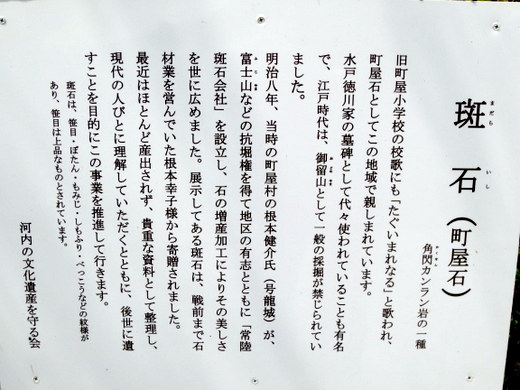 斑石（町屋石）
まだら いし
角閃カンラン岩の一種
かくせん
旧町屋小学校の校歌にも「たぐいまれなる」と歌われ、
町屋石としてこの地域で親しまれています。
水戸徳川家の墓碑として代々使われていることも有名
で、江戸時代は、御留山として一般の採掘が禁じられてい
ました。
明治八年、当時の町屋村の根本健介氏（号龍城）が、
富士山などの抗堀権を得て地区の有志とともに「常陸
斑石会社」を設立し、石の増産加工によりその美しさ
を世に広めました。展示してある斑石は、戦前まで石
材業を営んでいた根本幸子様から寄贈されました。
最近はほとんど産出されず、貴重な資料として整理し、
現代の人びとに理解していただくとともに、後世に遺
すことを目的にこの事業を推進して行きます。
斑石は、笹目・ぼたん・もみじ・しもふり・べっこうなどの紋様が
あり、笹目は上品なものとされています。
河内の文化遺産を守る会